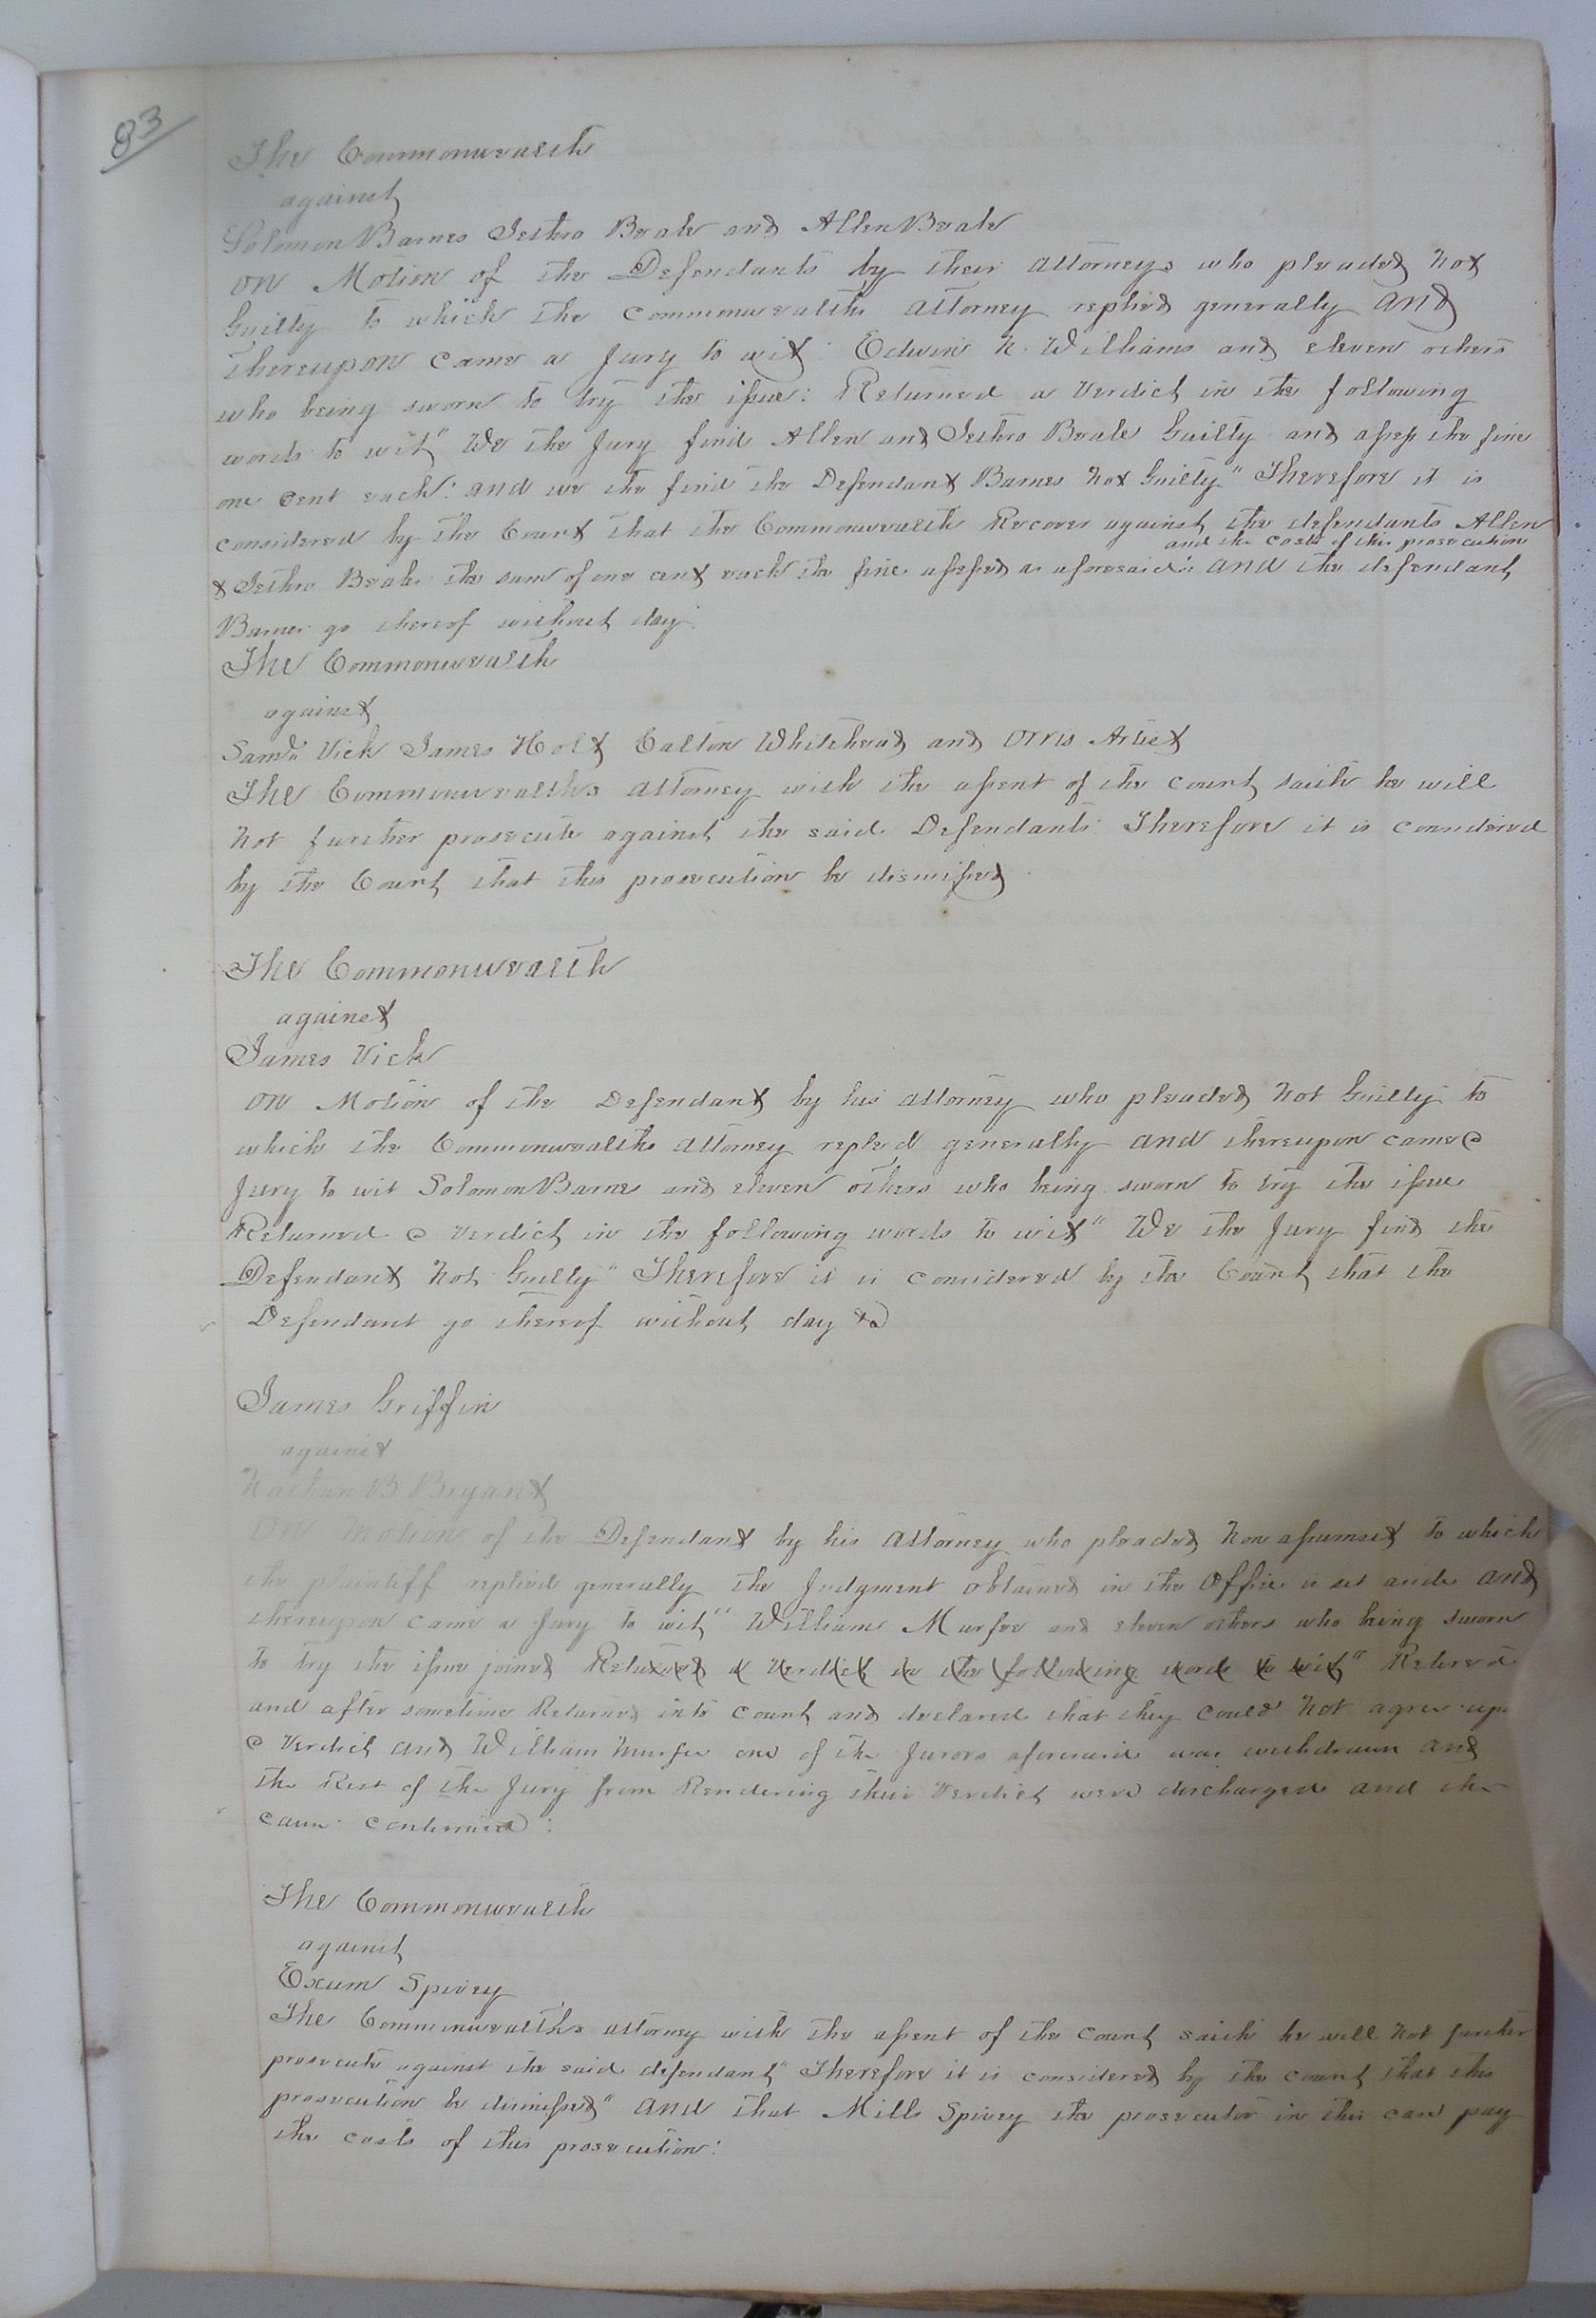 83
The Commonwealth
against
Solomon Barnes Jethro Beale and Allen Beale
on Motion of the Defendants by their attorneys who pleaded Not
Guilty to which the Commonwealths attorney replied generally and
thereupon came a Jury to wit: Edwin N. Williams and eleven others
who being sworn to try the issue: Returned a Verdict in the following
words to wit" We the Jury find Allen and Jethro Beale Guilty and assess the fine
one cent each: and we the find the Defendant Barnes Not Guilty" Therefore it is
considered by the Court that the Commonwealth Recover against the defendants Allen
and the costs of this prosecution
& Jethro Beale the sum of one cent each the fine assessed as aforesaid: and the defendant
Barnes go thereof without day.
The Commonwealth
against
Vick James Holt Calton Whitehead and Orris Artiet
The Commonwealths attorney with the assent of the court saith he will
not further prosecute against the said Defendants Therefore it is considered
by the Court that this prosecution be dismissed
The Commonwealth
against
James Vick
on Motion of the Defendant by his attorney who pleaded Not Guilty to
which the Commonwealths attorney repled generally and thereupon came a
Jury to wit Solomon Barnes and eleven others who being sworn to try the issue
Returned a Verdict in the following words to wit" We the Jury find the
Defendant Not Guilty" Therefore it is considered by the Court that the
Defendant go thereof without day &a
James Griffin
against
Nathan B Bryant
on Motion of the Defendant by his attorney who pleaded Non assumsit to which
the plaintiff replied generally the Judgment obtained in the Office is set aside and
thereupon came a Jury to wit" William Murfee and eleven others who being sworn
to try the issue joined Returned a Verdict in the following words to wit" Retired
and after sometime Returned into Court and declared that they could not agree upon
a Verdict and William Murfee one of the Jurors aforesaid was withdrawn and
the Rest of the Jury from Rendering their Verdict were discharged and the
cause continued:
The Commonwealth
against
Exum Spivey
The Commonwealths attorney with the assent of the court saith he will not further
prosecute against the said defendant" Therefore it is considered by the court that this
prosecution be dismissed" and that Mills Spivey the prosecutor in this case pay
the costs of this prosecution: